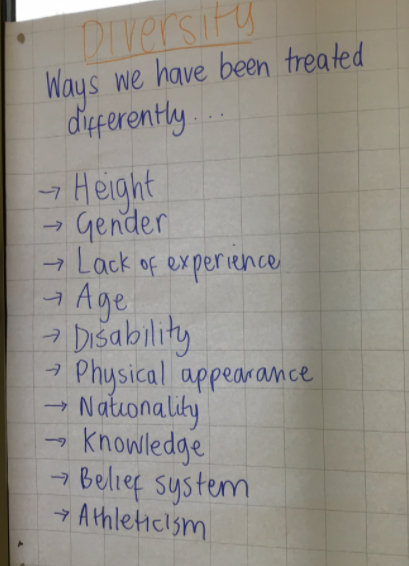 Diversity
Ways we have been treated
differently...
→ Height
→ Gender
→ Lack of experience
→ Age
→ Disability
→ Physical appearance
→ Nationality
→ Knowledge
→ Belief system
→ Athleticism